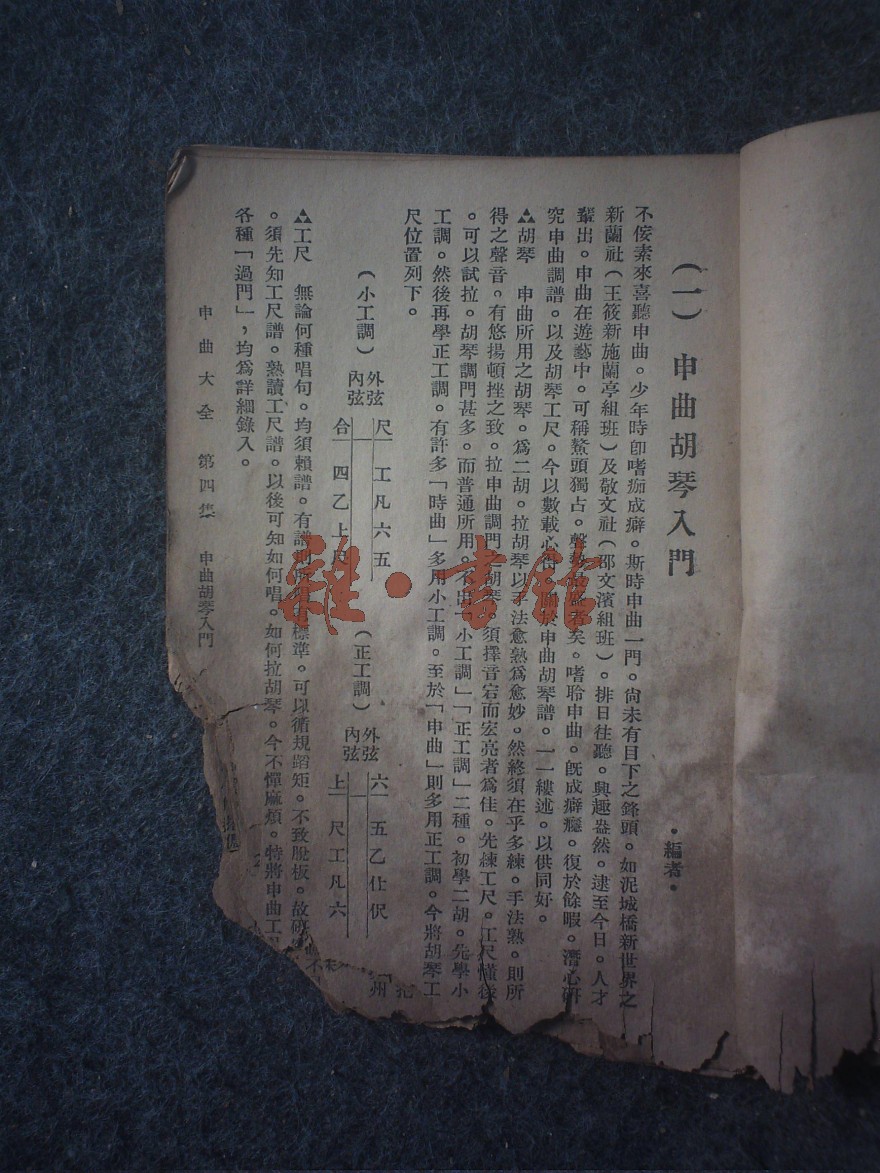 (一) 申曲胡琴入門
•編者•
不侫素來喜聽申曲。少年時卽嗜痂成癖。斯時申曲一門。尙未有目下之鋒頭。如泥城橋新世界之
新蘭社(王筱新施蘭亭組班)及敬文社(邵文濱組班)。排日往聽。興趣盎然。逮至今日。人才
輩出。申曲在遊藝中。可稱鰲頭獨占。聲勢 者矣。嗜聆申曲。旣成癖癮。復於餘暇。潛心硏
究申曲調譜。以及胡琴工尺。今以數載心得。 於申曲胡琴譜。一一縷述。以供同好。
▲胡琴 申曲所用之胡琴。爲二胡。拉胡琴以手法愈熟爲愈妙。然終須在乎多練。手法熟。則所
得之聲音。有悠揚頓挫之致。拉申曲調門之胡琴。須擇音宕而宏亮者爲佳。先練工尺。工尺懂後
。可以試拉。胡琴調門甚多。而普通所用。不出「小工調」「正工調」二種。初學二胡。先學小
工調。然後再學正工調。有許多「時曲」多用小工調。至於「申曲」則多用正工調。今將胡琴工
尺位置列下。
(小工調) 外弦 尺 工凡六五
內弦 合 四乙上尺
(正工調) 外弦 六 五乙仕伬
內弦 上 尺工凡六
▲工尺 無論何種唱句。均須賴譜。有譜則所唱有標準。可以循規蹈矩。不致脫板。故硏
。須先知工尺譜。熟讀工尺譜。以後可知如何唱。如何拉胡琴。今不憚麻煩。特將申曲工
各種「過門」，均爲詳細錄入。
申曲大全 第四集 申曲胡琴入門
雜·書館